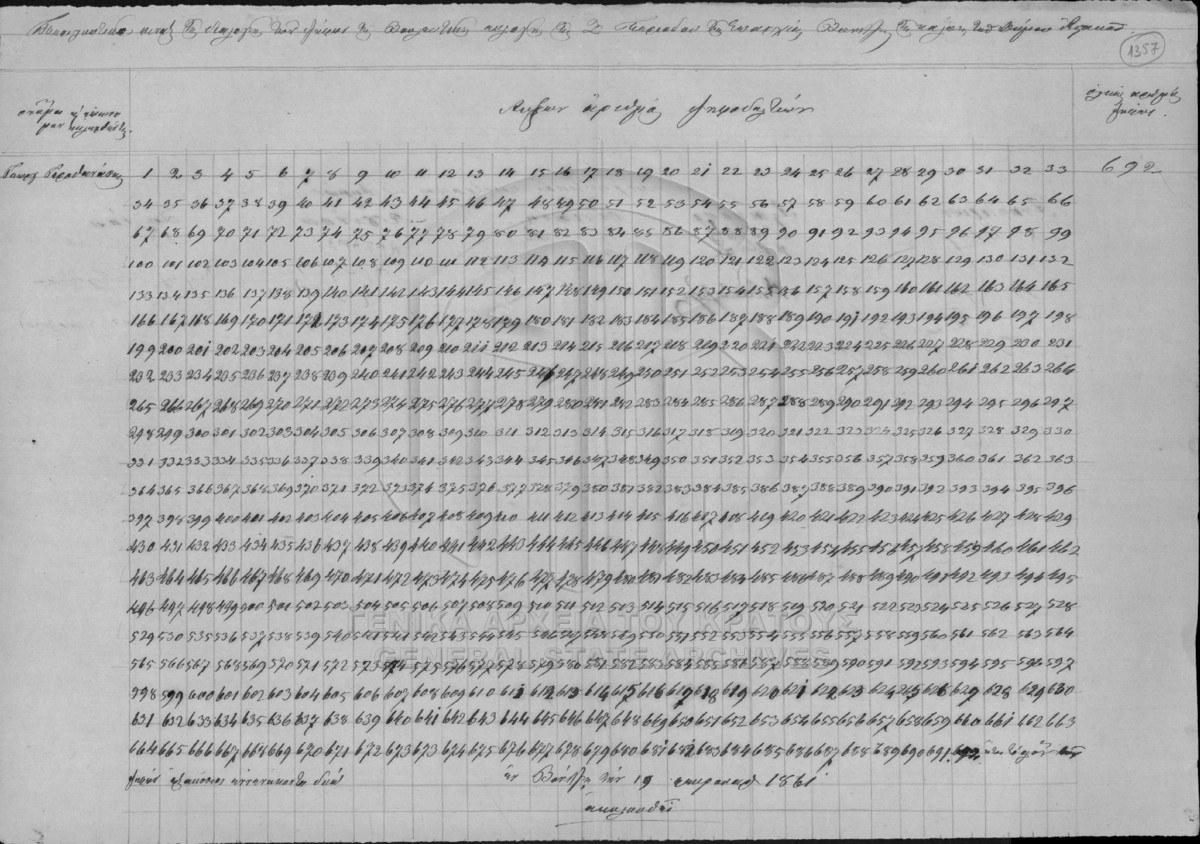 τῆς Ζ΄ Περιόδου τῆς Ἐπαρχίας τοῦ Δήμου
1357
Αὔξων ἀριθμός ψηφοδελτίων
1 2 3 4 5 6 7 8 9 10 11 12 13 14 15 16 17 18 19 20 21 22 23 24 25 26 27 28 29 30 31 32 33 692
34 35 36 37 38 39 40 41 42 43 44 45 46 47 48 49 50 51 52 53 54 55 56 57 58 59 60 61 62 63 64 65 66
67 68 69 70 71 72 73 74 75 76 77 78 79 80 81 82 83 84 85 86 87 88 89 90 91 92 93 94 95 96 97 98 99
100 101 102 103 104 105 106 107 108 109 110 111 112 113 114 115 116 117 118 119 120 121 122 123 124 125 126 127 128 129 130 131 132
133 134 135 136 137 138 139 140 141 142 143 144 145 146 147 148 149 150 151 152 153 154 155 156 157 158 159 160 161 162 163 164 165
166 167 168 169 170 171 172 173 174 175 176 177 178 179 180 181 182 183 184 185 186 187 188 189 190 191 192 193 194 195 196 197 198
199 200 201 202 203 204 205 206 207 208 209 210 211 212 213 214 215 216 217 218 219 220 221 222 223 224 225 226 227 228 229 230 231
232 233 234 235 236 237 238 239 240 241 242 243 244 245 246 247 248 249 250 251 252 253 254 255 256 257 258 259 260 261 262 263 264
265 266 267 268 269 270 271 272 273 274 275 276 277 278 279 280 281 282 283 284 285 286 287 288 289 290 291 292 293 294 295 296 297
298 299 300 301 302 303 304 305 306 307 308 309 310 311 312 313 314 315 316 317 318 319 320 321 322 323 324 325 326 327 328 329 330
331 332 333 334 335 336 337 338 339 340 341 342 343 344 345 346 347 348 349 350 351 352 353 354 355 356 357 358 359 360 361 362 363
364 365 366 367 368 369 370 371 372 373 374 375 376 377 378 379 380 381 382 383 384 385 386 387 388 389 390 391 392 393 394 395 396
397 398 399 400 401 402 403 404 405 406 407 408 409 410 411 412 413 414 415 416 417 418 419 420 421 422 423 424 425 426 427 428 429
430 431 432 433 434 435 436 437 438 439 440 441 442 443 444 445 446 447 448 449 450 451 452 453 454 455 456 457 458 459 460 461 462
463 464 465 466 467 468 469 470 471 472 473 474 475 476 477 478 479 480 481 482 483 484 485 486 487 488 489 490 491 492 493 494 495
496 497 498 499 500 501 502 503 504 505 506 507 508 509 510 511 512 513 514 515 516 517 518 519 520 521 522 523 524 525 526 527 528
ΓΕΝΙΚΑ ΑΡΧΕΙΑ ΤΟΥ ΚΡΑΤΟΥΣ
529 530 535 536 537 538 539 540 541 541 542 543 544 545 546 547 548 549 550 551 552 553 554 555 556 557 558 559 560 561 562 563 564
GENERAL STATE ARCHIVES
565 566 567 568 569 570 571 572 573 574 575 576 577 578 579 580 581 582 583 584 585 586 587 588 589 590 591 592 593 594 595 596 597
598 599 600 601 602 603 604 605 606 607 608 609 610 611 612 613 614 615 616 617 618 619 620 621 622 623 624 625 626 627 628 629 630
631 632 633 634 635 636 637 638 639 640 641 642 643 644 645 646 647 648 649 650 651 652 653 654 655 656 657 658 659 660 661 662 663
664 665 666 667 668 669 670 671 672 673 673 674 675 676 677 678 679 680 681 682 683 684 685 686 687 688 689 690 691
ἑξακόσιοι ἐννενήκοντα δύο ἐν τὴν 19 1861
ἀκολουθεῖ